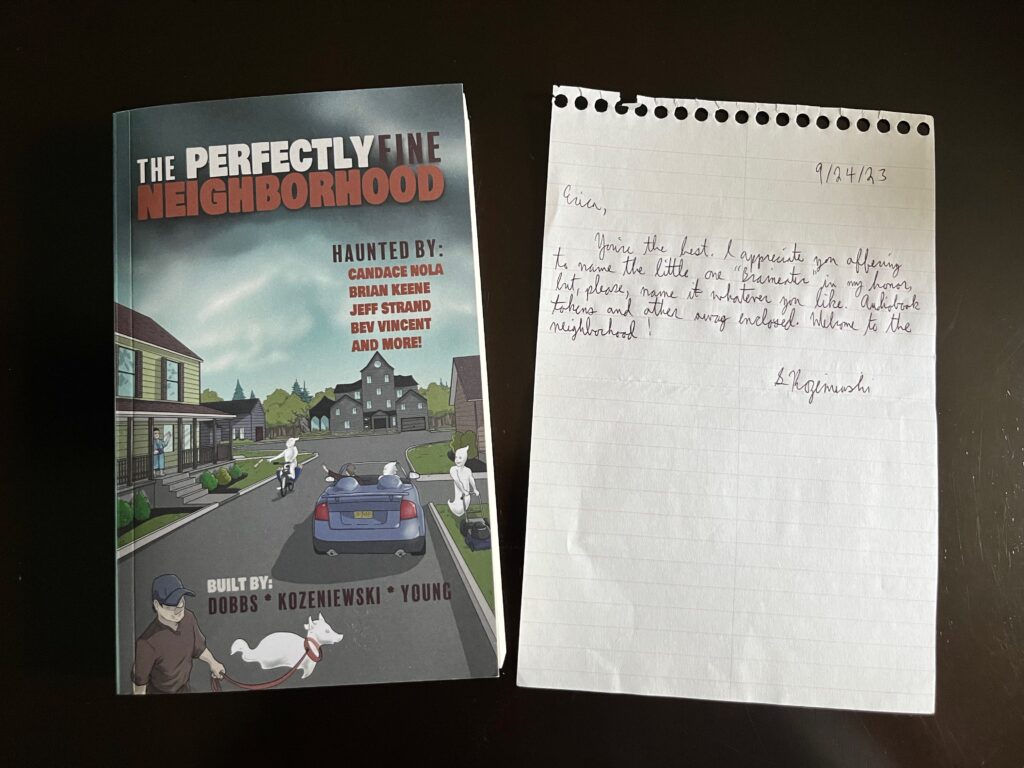 THE PERFECTLY FINE
NEIGHBORHOOD
HAUNTED BY:
CANDACE NOLA
BRIAN KEENE
JEFF STRAND
BEV VINCENT
AND MORE!
BUILT BY:
DOBBS * KOZENIEWSKI * YOUNG
9/24/23
Erica,
You're the best. I appreciate you offering
to name the little one "Braineater" in my honor,
but, please, name it whatever you like. Audiobook
tokens and other swag enclosed. Welcome to the
neighborhood!
S Kozeniewski